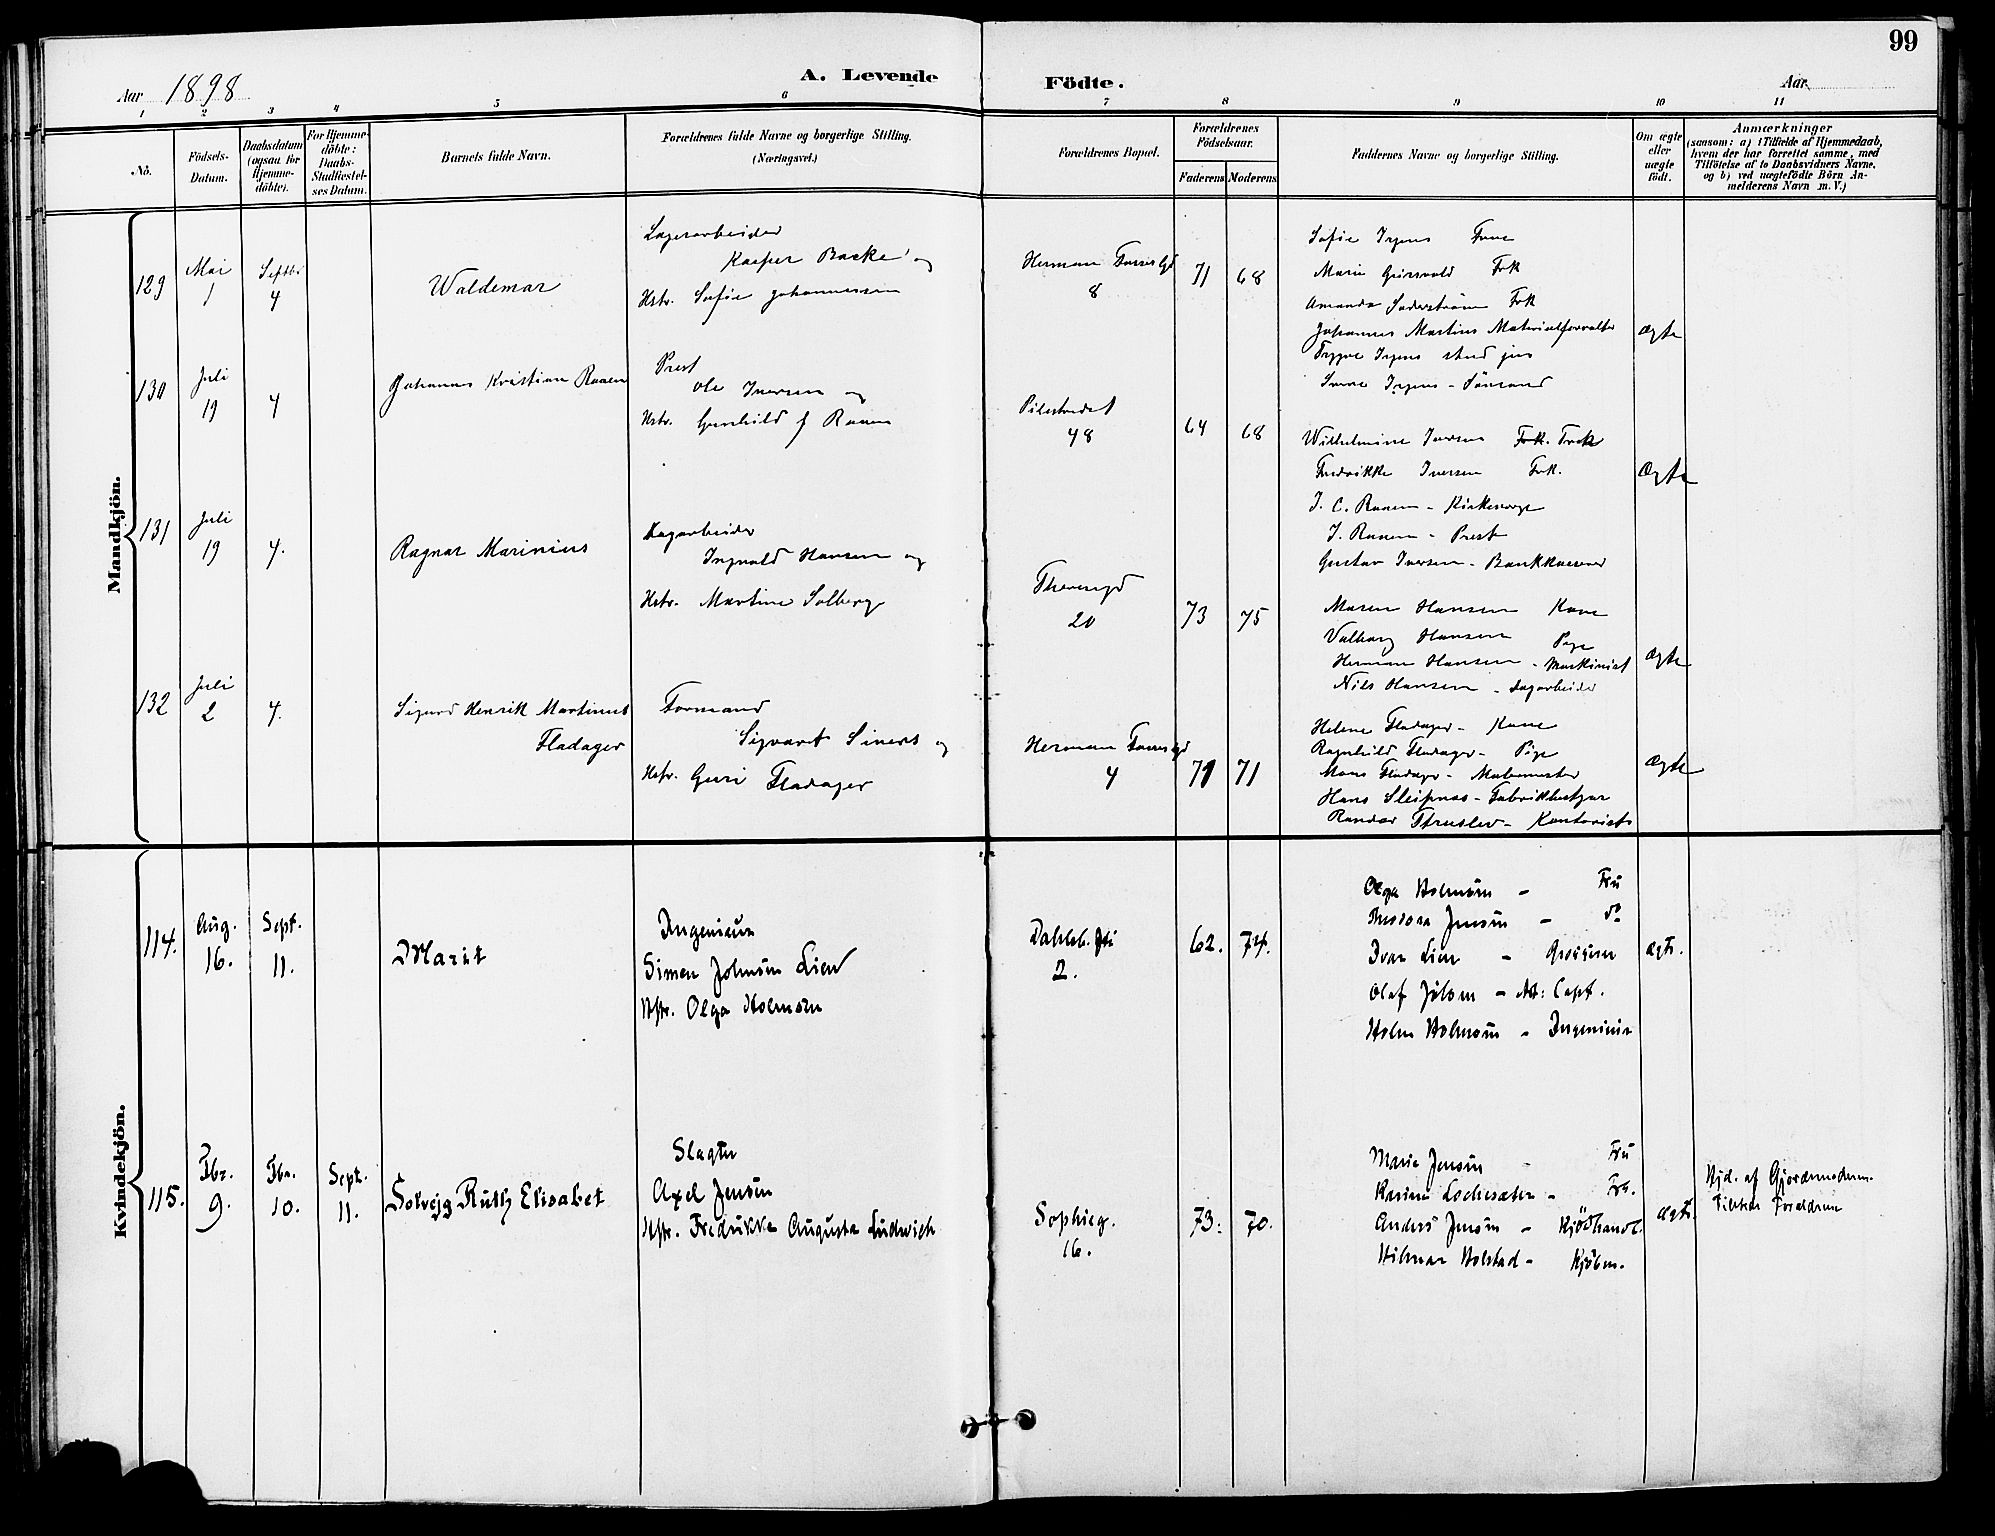 99
Aar 1898
A. Levende Födte.
Aar
1 2 3 4 5 6 7 8 9 10 11
No.
Födsels-Datum.
Daabsdatum (ogsaa for Hjemme-döbte).
For Hjemme-döbte: Daabs-Stadfæstel-ses Datum.
Barnets fulde Navn.
Forældrenes fulde Navne og borgerlige Stilling.
(Næringsvei.)
Forældrenes Bopæl.
Forældrenes Födselsaar.
Faderens Moderens
Faddernes Navne og borgerlige Stilling.
Om ægte eller uægte födt.
Anmærkninger
(saasom: a) i Tilfælde af Hjemmedaab,
hvem der har forrettet samme, med
Tilföielse af to Daabsvidners Navne,
og b) ved uægtefödte Börn An-
melderens Navn m. V.)
Mandkjön.
129
Mai
1
Septbr
4
Waldemar
Lagerarbeider
Kasper Backe og
Hstr. Sofie Johannessen
Herman Fossesgd
8
71
68
Marie Frk
Amanda Søderstrøm Frk
Johannes Martins Materialforvalter
stud jur
Sømand
ægte
130
Juli
19
4
Johannes Kristian Raaen
Prest
Ole Iversen og
Hstr. Gunhild f Raaen
Pilestredet
48
64
68
Wilhelmine Iversen Frk. Frk
Fredrikke Iversen Frk.
J. C. Raaen - Kirkeverge
J. Raaen - Prest
Gustav Iversen - Bankkasserer
ægte
131
Juli
19
4.
Ragnar Marinius
Sagarbeider
Ingvald Hansen og
Hstr. Martine Solberg
Thorensgd
20
73
75
Maren Hansen Kone
Valborg Hansen Pige
Herman Hansen - Maskinist
Nils Hansen - Sagarbeider
ægte
132
Juli
2
4.
Sigurd Henrik Martinus
Fladager
Formand
Sigvart Sivers og
Hstr. Guri Fladager
Herman Fossesgd
4
71
71
Helene Fladager - Kone
Ragnhild Fladager - Pige
Mons Fladager - Malermester
Hans Sleipnæs - Fabrikbestyrer
Kontorist
ægte
Kvindekjön.
114.
Aug.
16.
Sept.
11.
Marit
Ingenieur
Simen Johnsen Lien
Hstr. Olga Holmsen
Dahlsb.
2.
62.
74.
Olga Holmsen - Fru
Theodora Jensen - do
Ivar Lien - Grosserer
Olaf - Capt.
Holm Holmsen - Ingeniør
ægte.
115.
Fbr.
9.
Fbr.
10.
Sept.
11.
Solvejg Ruth Elisabet
Slagter
Axel Jensen
Hstr. Fredrikke Augusta Ludwich
Sophieg.
16.
73.
70.
Marie Jensen - Fru
Karine - Frk.
Anders Jensen - Kjødhandl.
Hilmar Holstad - Kjøbm.
ægte.
Hjd. af Gjordemoderen.
Tilstede Forældrene